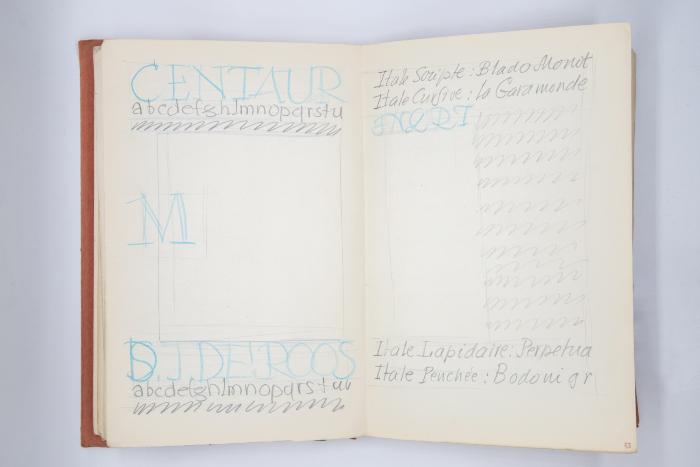 CENTAUR
abcdefghlmnopqrstu
M
S.J.DE.ROOS
abcdefghlmnopqrstuv
Itale Scripte : Blado Monot
Itale Cursive : la Garamonde
Itale Lapidaire : Perpetua
Itale Penchée : Bodoni gr